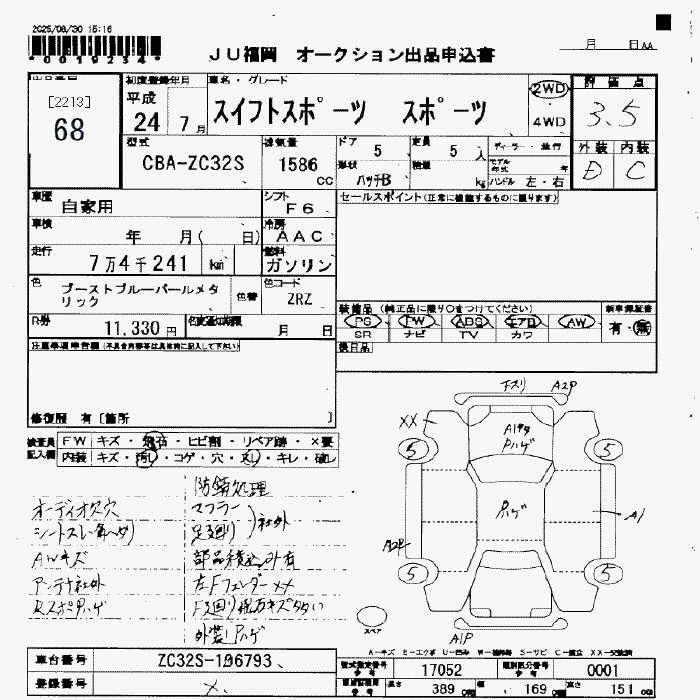 2025/08/30 15:16
*0019234*
JU福岡 オークション出品申込書
月 日AA
[2213]
68
初度登録年月
平成
24 7月
車名・グレード
スイフトスポーツ スポーツ
2WD
4WD
評価点
3.5
外装 内装
D C
型式
CBA-ZC32S
排気量
1586
CC
ドア
5
定員
5人
形状
ハッチB
積載
kg
ディーラー・並行
モデル年式 年
ハンドル 左・右
車歴
自家用
シフト
F6
セールスポイント(正常に機能するものに限ります)
車検
年 月( 日)
冷房
AAC
走行
7万4千241 km
燃料
ガソリン
色
ブーストブルーパールメタリック
色替
色コード
ZRZ
R券
11,330 円
名変通知期限
月 日
装備品(純正品に限り○をつけてください)
新車保証書
PS PW ABS エアB AW
SR ナビ TV カワ
有・無
後日品
注意事項申告欄(不具合内容等は具体的に記入して下さい)
修復歴 有[箇所 ]
検査員記入欄
FW キズ・飛石・ヒビ割・リペア跡・×要
内装 キズ・汚れ・コゲ・穴・スレ・キレ・破れ
防錆処理
オーディオ欠穴
マフラー
足廻り
社外
シートスレ
AWキズ
部品積込み有
アンテナ社外
左Fフェンダー××
RスポPハゲ
外装Pハゲ
下スリ A2P
XX
Pハゲ
Pハゲ
5
5
5
5
A1
A2P
A1P
スペア
A-キズ E-エクボ U-凹み W-補修跡 S-サビ C-腐食 XX-交換済
車台番号
ZC32S-106793
登録番号
型式指定番号
参考
17052
類別区分番号
参考
0001
長さ 389 幅 169 高さ 151